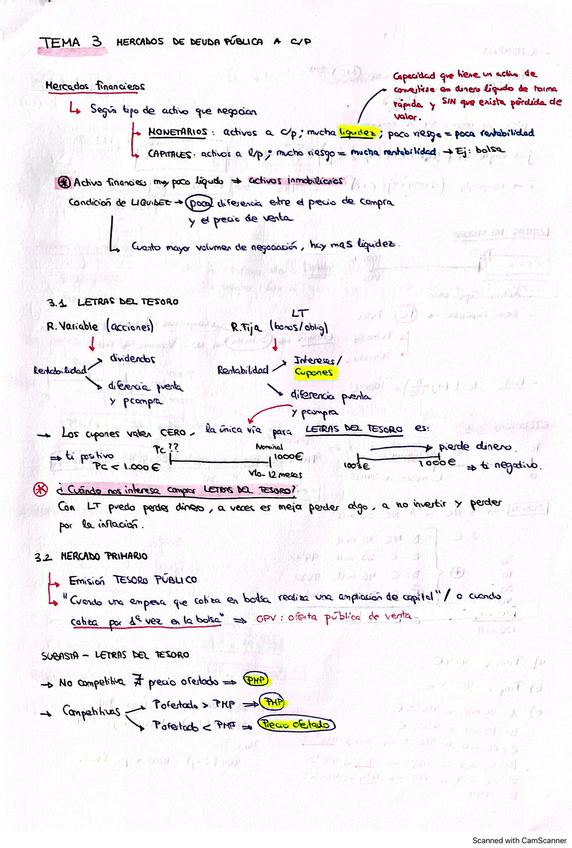 TEMA 3 MERCADOS DE DEUDA PÚBLICA A C/P
Capacidad que tiene un activo de
convertirse en dinero líquido de forma
rápida y SIN que exista pérdida de
valor.
Mercados financieros
↳ Según tipo de activo que negocian
→ MONETARIOS: activos a c/p; mucha liquidez; poco riesgo = poca rentabilidad
→ CAPITALES: activos a l/p; mucho riesgo = mucha rentabilidad → Ej: bolsa
* Activo financiero muy poco líquido → activos inmobiliarios
Condición de LIQUIDEZ → poca diferencia entre el precio de compra
y el precio de venta
↳ Cuanto mayor volumen de negociación, hay más liquidez.
3.1 LETRAS DEL TESORO
LT
R. Variable (acciones) R. Fija (bonos/oblig)
Rentabilidad → dividendos
→ diferencia pventa
y pcompra
Rentabilidad → Intereses/
Cupones
→ diferencia pventa
y pcompra
→ Los cupones valen CERO, la única vía para LETRAS DEL TESORO es:
⇒ ti positivo
PC < 1.000 €
Pc??
Nominal
1000€
Vto-12 meses
pierde dinero.
1000€ ⇒ ti negativo.
* ¿Cuándo nos interesa comprar LETRAS DEL TESORO?
Con LT puedo perder dinero, a veces es mejor perder algo, a no invertir y perder
por la inflación.
3.2 MERCADO PRIMARIO
→ Emisión TESORO PÚBLICO
→ "Cuando una empresa que cotiza en bolsa realiza una ampliación de capital" / o cuando
cotiza por 1ª vez en la bolsa" ⇒ OPV: oferta pública de venta.
SUBASTA - LETRAS DEL TESORO
→ No competitiva ∄ precio ofertado ⇒ PMP
→ Competitivas → Pofertado > PMP ⇒ PMP
→ Pofertado < PMP ⇒ Precio ofertado
Scanned with CamScanner